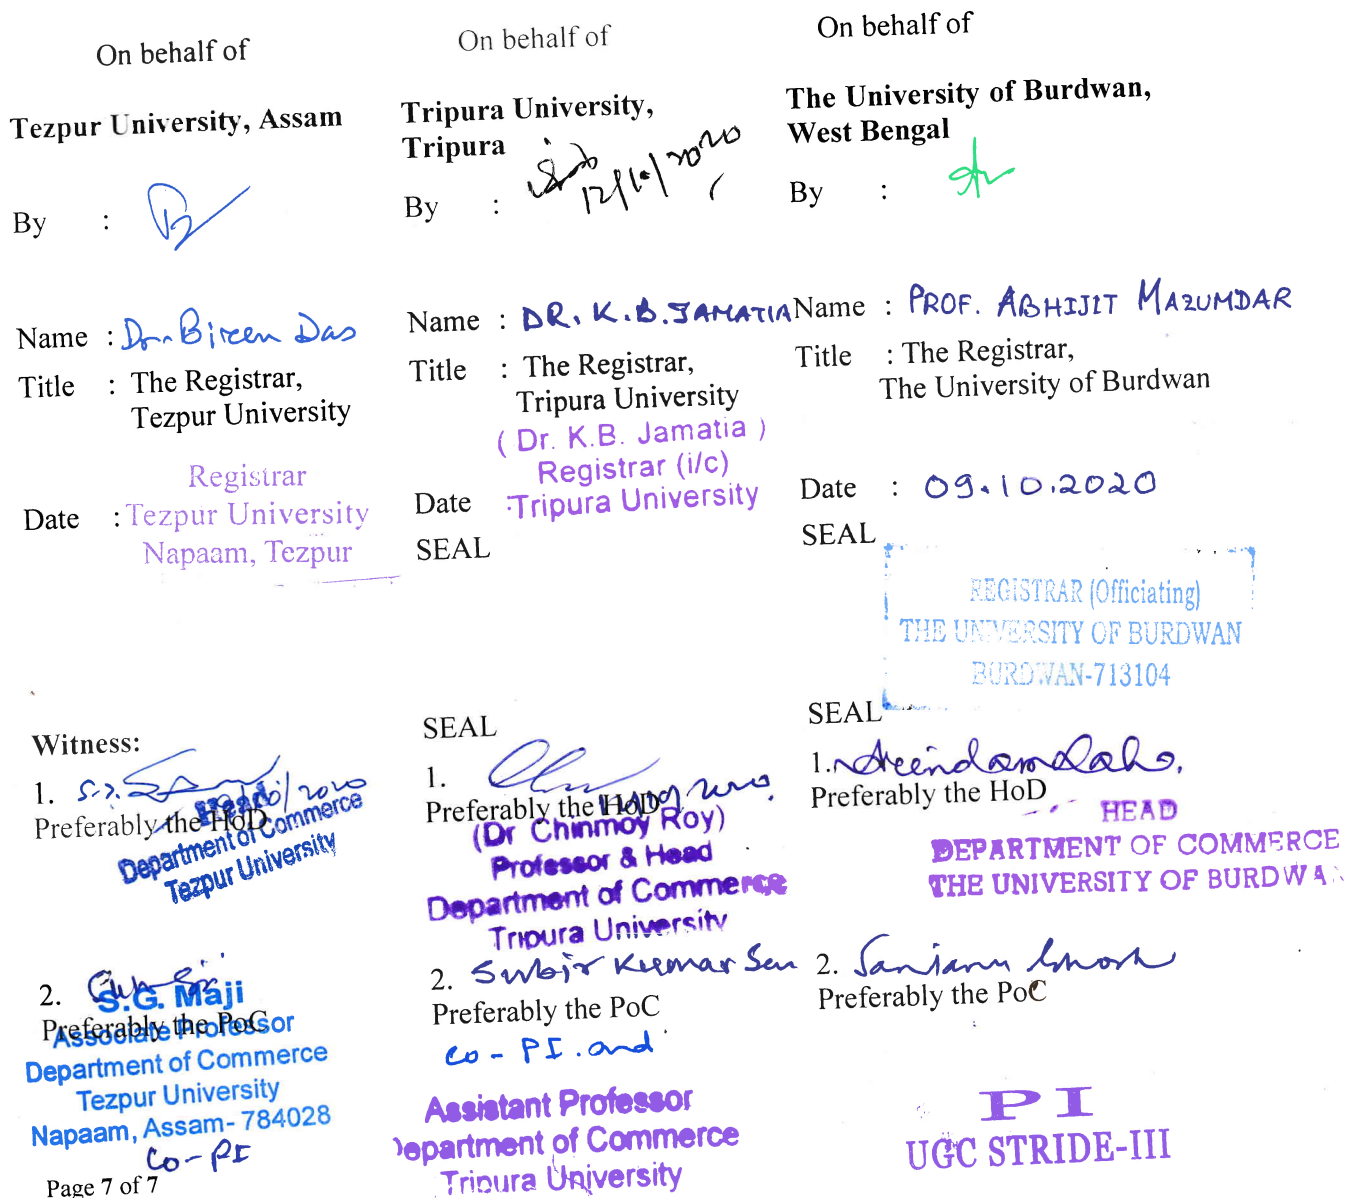 On behalf of
Tezpur University, Assam
By :
Name : Dr. Biren Das
Title : The Registrar,
Tezpur University
Registrar
Date : Tezpur University
Napaam, Tezpur
Witness:
1.
Preferably the HoD
Head
Department of Commerce
Tezpur University
2.
S.G. Maji
Preferably the PoC
Associate Professor
Department of Commerce
Tezpur University
Napaam, Assam- 784028
Co-PI
Page 7 of 7
On behalf of
Tripura University,
Tripura
12/10/2020
By :
Name : DR. K.B. JAMATIA
Title : The Registrar,
Tripura University
( Dr. K.B. Jamatia )
Registrar (i/c)
Date :Tripura University
SEAL
SEAL
1.
Preferably the HoD
(Dr Chinmoy Roy)
Professor & Head
Department of Commerce
Tripura University
2. Subir Kumar Sen
Preferably the PoC
Co-PI. and
Assistant Professor
Department of Commerce
Tripura University
On behalf of
The University of Burdwan,
West Bengal
By :
Name : PROF. ABHIJIT MAZUMDAR
Title : The Registrar,
The University of Burdwan
Date : 09.10.2020
SEAL
REGISTRAR (Officiating)
THE UNIVERSITY OF BURDWAN
BURDWAN-713104
SEAL
1. Arindam Laha.
Preferably the HoD
HEAD
DEPARTMENT OF COMMERCE
THE UNIVERSITY OF BURDWA
2. Santanu Ghosh
Preferably the PoC
PI
UGC STRIDE-III